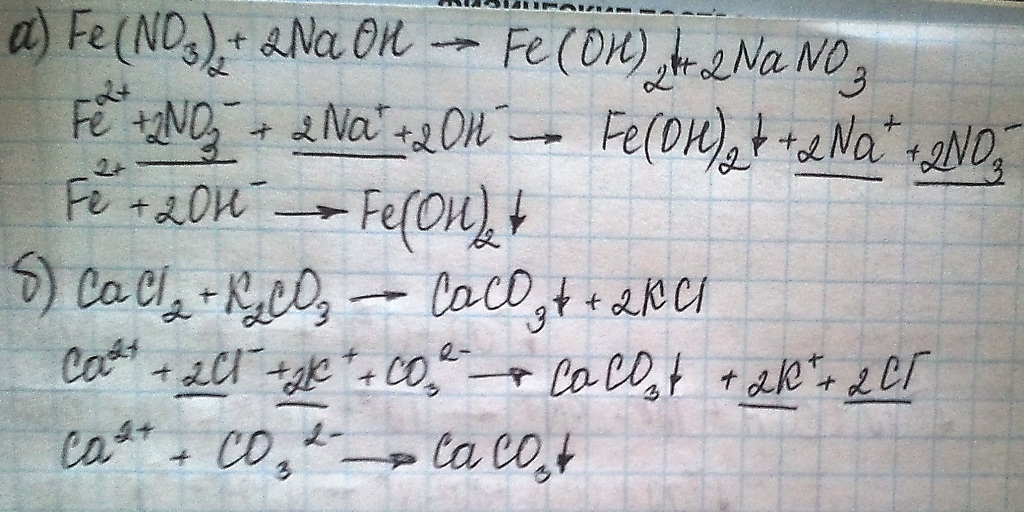 а) Fe(NO₃)₂ + 2NaOH → Fe(OH)₂↓ + 2NaNO₃
Fe²⁺ + 2NO₃⁻ + 2Na⁺ + 2OH⁻ → Fe(OH)₂↓ + 2Na⁺ + 2NO₃⁻
Fe²⁺ + 2OH⁻ → Fe(OH)₂↓
б) CaCl₂ + K₂CO₃ → CaCO₃↓ + 2KCl
Ca²⁺ + 2Cl⁻ + 2K⁺ + CO₃²⁻ → CaCO₃↓ + 2K⁺ + 2Cl⁻
Ca²⁺ + CO₃²⁻ → CaCO₃↓